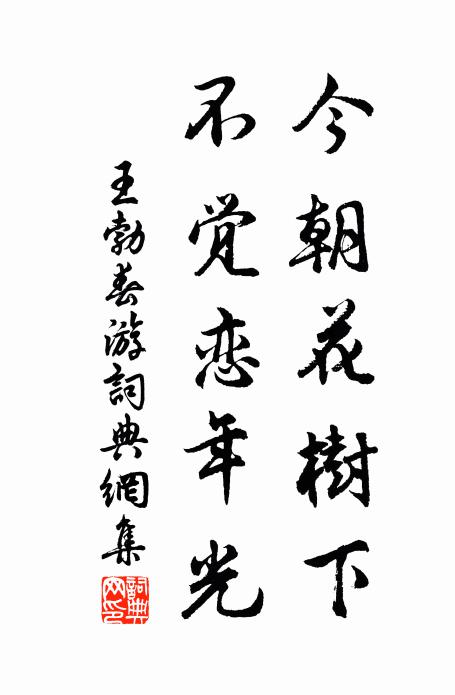 今朝花樹下
不觉恋年光
王勃春游詞典網集
詞典网印